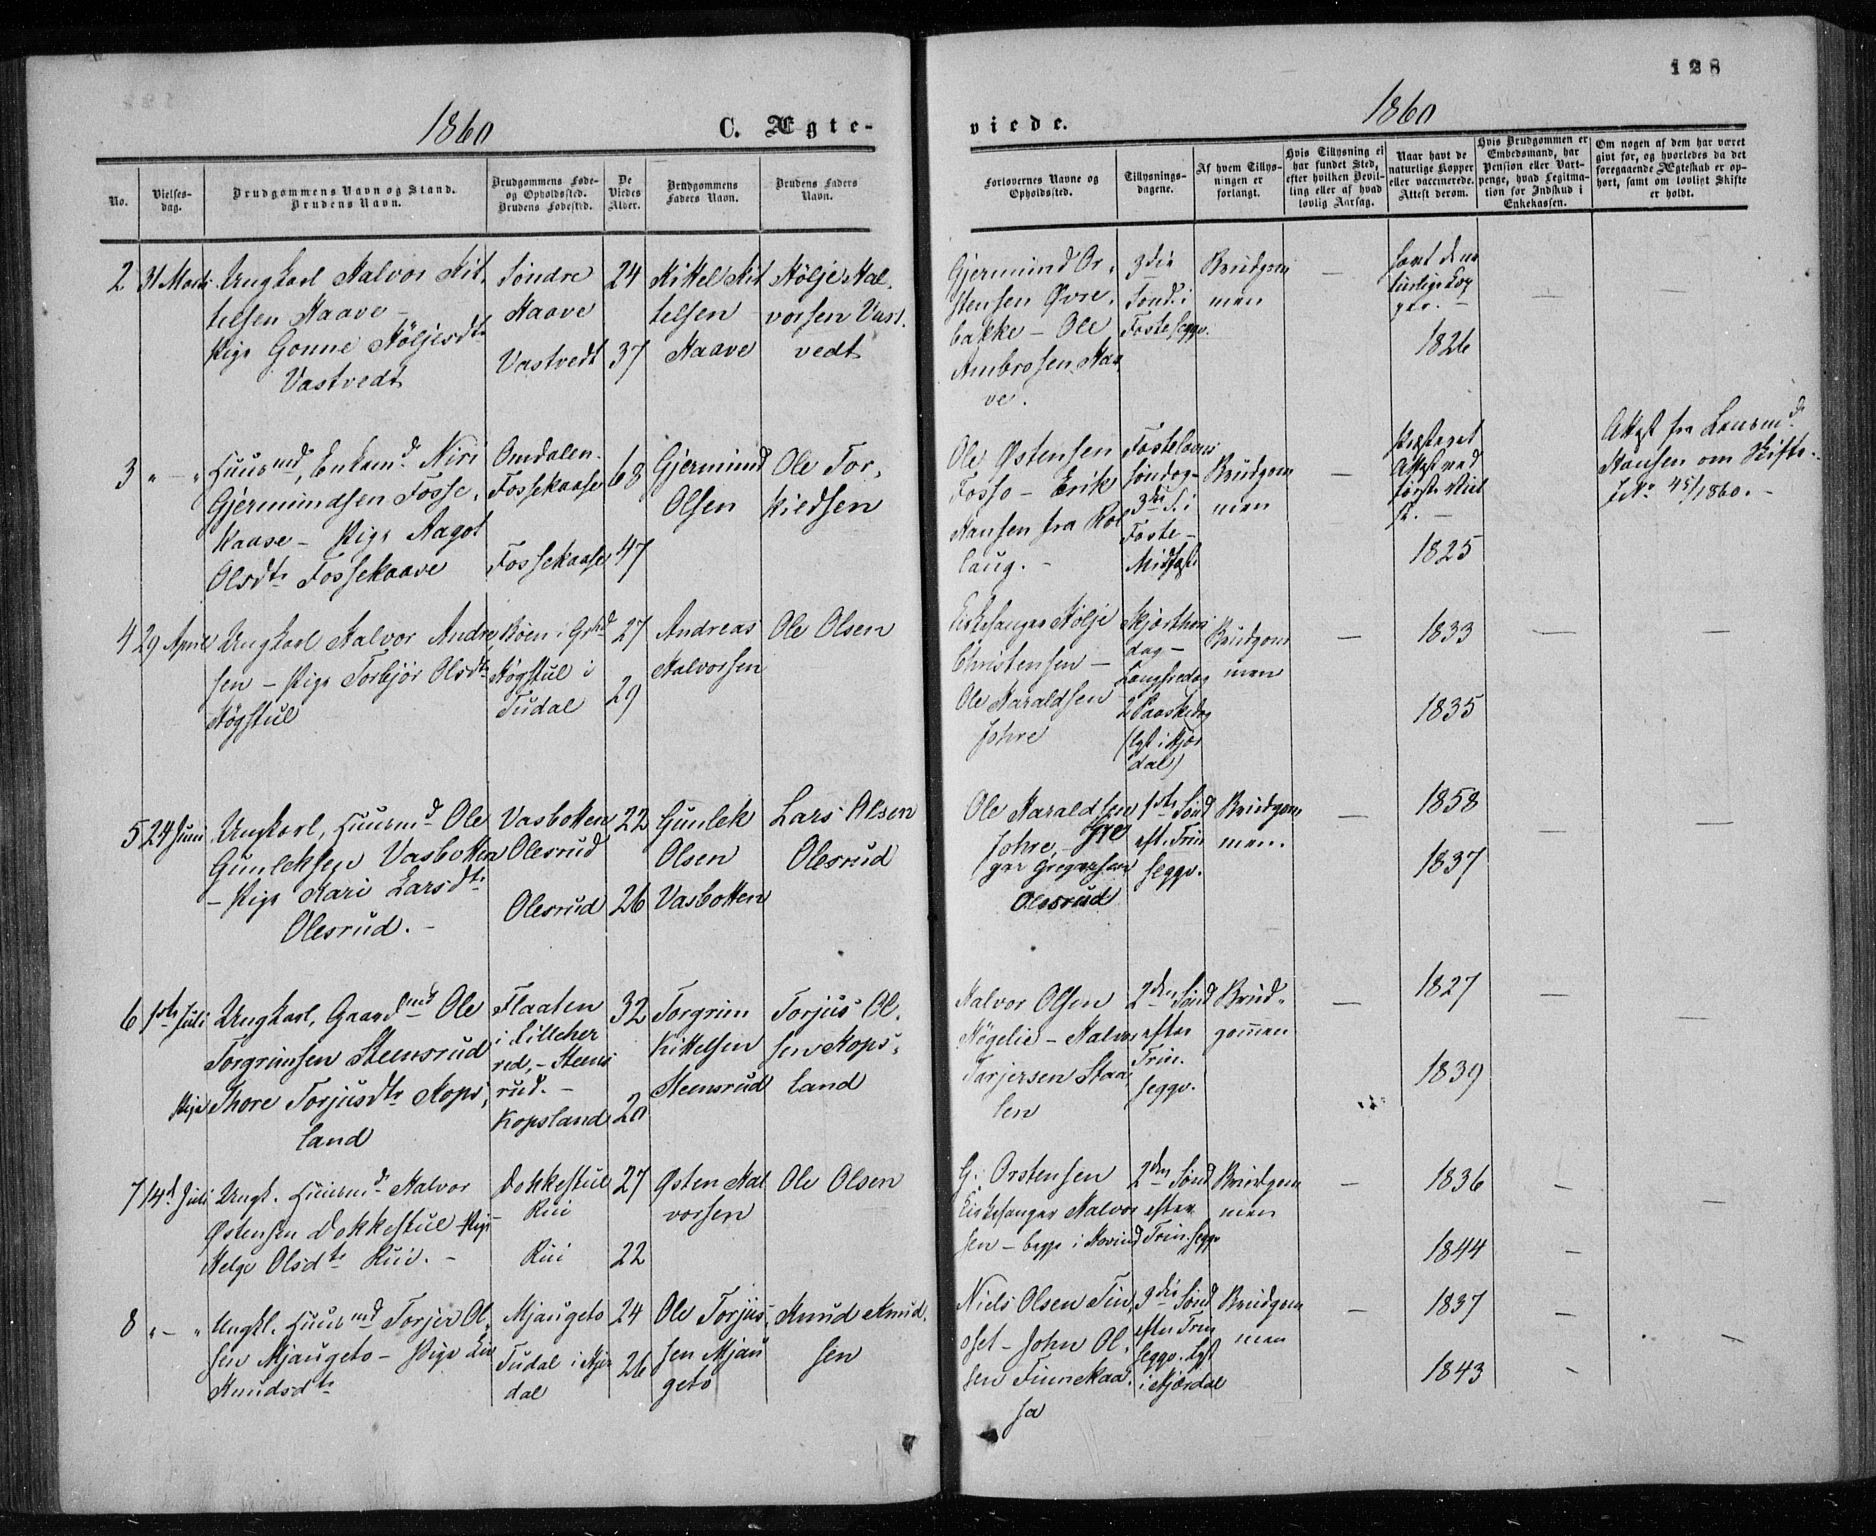 128
1860
C. Ægte-
viede.
1860
No.
Vielses-
dag.
Brudgommens Navn og Stand.
Brudens Navn.
Brudgommens Føde-
og Opholdssted.
Brudens Fødested.
De
Viedes
Alder.
Brudgommens
Faders Navn.
Brudens Faders
Navn.
Forlovernes Navne og
Opholdssted.
Tillysnings-
dagene.
Af hvem Tillys-
ningen er
forlangt.
Hvis Tillysning ei
har fundet Sted,
efter hvilken Bevil-
ling eller af hvad
lovlig Aarsag.
Naar havt de
naturlige Kopper
eller vaccinerede.
Attest derom.
Hvis Brudgommen er
Embedsmand, har
Pension eller Vart-
penge, hvad Legitma-
tion for Indskud i
Enkekassen.
Om nogen af dem har været
givt før, og hvorledes da det
foregaaende Ægteskab er op-
hørt, samt om lovligt Skifte
er holdt.
2
31 Marts
Ungkarl Halvor Kit
telsen Haave –
Pige Gonne Høljesdtr
Vastvedt
Søndre
Haave
Vastvedt
24
37
Kittel Kit
telsen
Haave
Hølje Hal
vorsen Vast
vedt
Gjermund Or
stensen Øvre
bakke – Ole
Ambrosen Haa
ve.
3die
Sønd. i
Faste, begge.
Brudgom
men
—
havt de na
turlige Kop
per. –
1826
—
—
3
" – "
Huusmd, Enkemd. Niri
Gjermundsen Fosse
kaase – Pige Aagot
Olsdtr Fossekaase
Omdalen
Fossekaase
Fossekaase
68
47
Gjermund
Olsen
Ole Tor
kildsen
Ole Østensen
Fosso – Erik
Hansen fra Rol
laug. –
Fastelavns
Søndag –
3die S. i
Faste –
Midfaste
Brudgom
men
—
Præsteat
Attest ved
første Viel
se. –
1825
Attest fra Lensmd.
Hansen om Skifte
JNo 45/1860. –
4
29 April
Ungkarl Halvor Andrea
sen – Pige Torbjør Olsdtr
Høgstul
Moen i Grhd
Høgstul i
Tudal
27
29
Andreas
Halvorsen
Ole Olsen
Kirkesanger Hølje
Christensen –
Ole Haraldsen
Johre
Skjærthors
dag –
Langfredag
2 Paaskedag
(lyst i Hjer
dal)
Brudgom
men
—
1833
1835
—
—
5
24 Juni
Ungkarl, Huusmd Ole
Gunleksen Vasbotten
– Pige Kari Larsdtr
Olesrud. –
Vasbotten
Olesrud
Olesrud
22
26
Gunlek
Olsen
Vasbotten
Lars Olsen
Olesrud
Ole Haraldsen
Johre – Gre
gar Gregarsen
Olesrud
1ste Sønd
eft. Trin
begge.
Brudgom
men.
—
1858
1837
—
—
6
1ste Juli
Ungkarl, Gaardmd Ole
Torgrimsen Steensrud
Pige Thore Torjusdtr Kops
land
Flaaten
i Lilleher
red, – Steens
rud. –
Kopsland
32
20
Torgrim
Kittelsen
Steensrud
Torjus Ol
sen Kops
land
Halvor Olsen
Høgelie – Halvor
Torjersen Staa
len
2den Sønd
efter
Trin.
begge.
Brud
gommen
—
1827
1839
—
—
7
14d. Juli
Ungk. Huusmd. Halvor
Østensen Dokkestul – Pige
Helge Olsdtr Rui. –
Dokkestul
Rui
Rui
27
22
Østen Hal
vorsen
Ole Olsen
G. Orstensen
Kirkesanger Halvor
sen – begge i Hovind
2den Sønd
efter
Trin. begge
Brudgom
men
—
1836
1844
—
—
—
8
" – "
Ungkl. Huusmd Torjer Ol
sen Mjaugeto – Pige Liv
Knudsdtr
Mjaugeto
Tudal i Hjer
dal
24
26
Ole Torjus
sen Mjau
geto
Knud Knud
sen
Niels Olsen Tin
oset – John Ol
sen Finnekaa
sa
3die Sønd
efter Trin
begge. Lyst
i Hjerdal
Brudgom
men
—
1837
1843
—
—
—